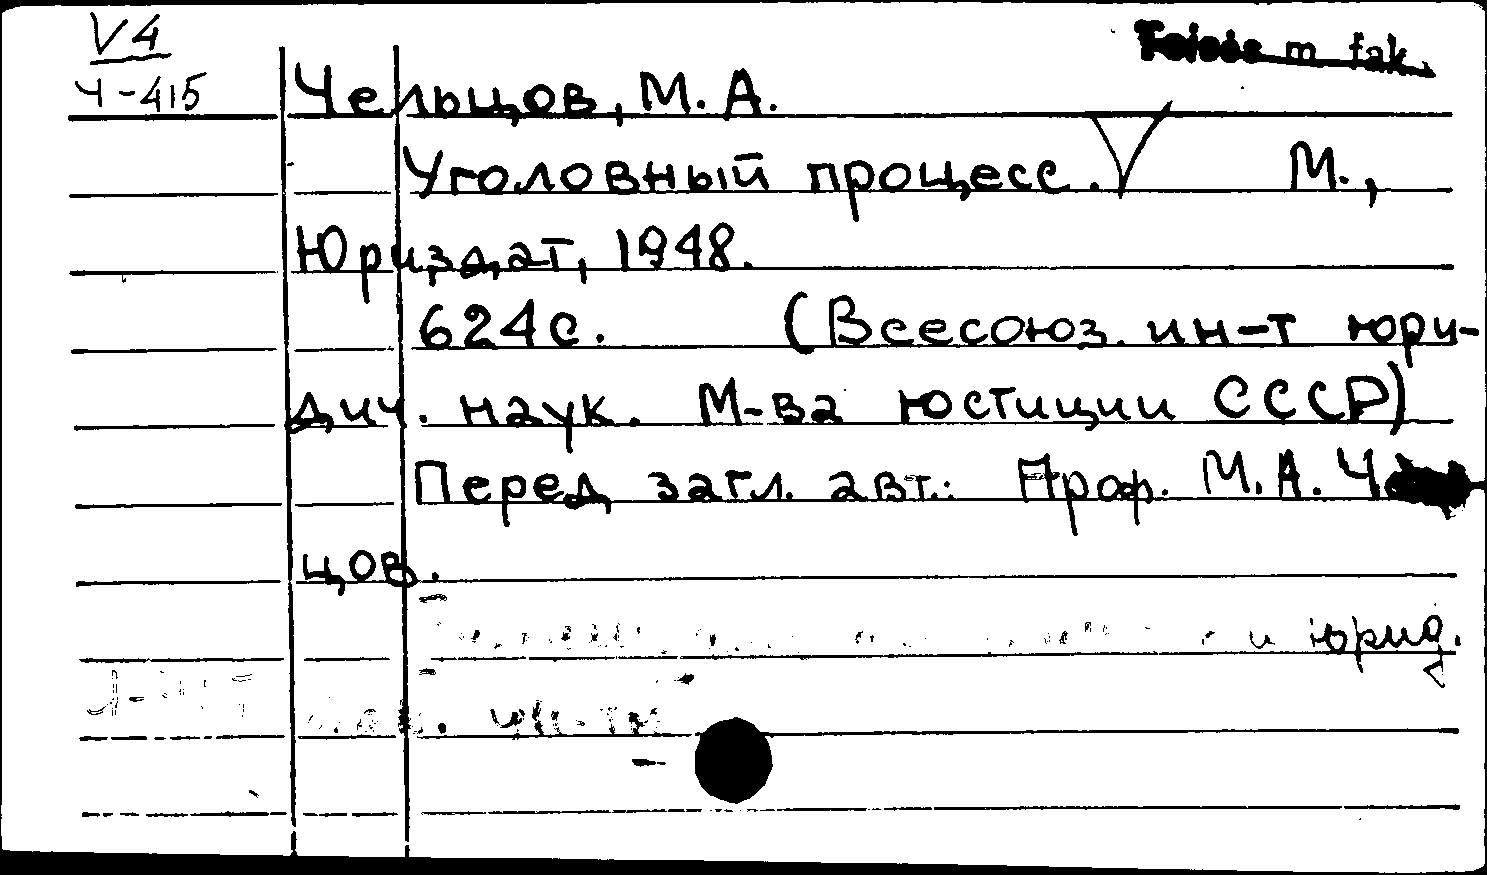 V4
Ч-415
m. fak.
Чельцов, М. А.
Уголовный процесс. М.,
Юриздат, 1948.
624 с. (Всесоюз. ин-т юри-
дич. наук. М-ва юстиции СССР)
Перед загл. авт.: Проф. М. А. Че
цов.
и юрид.